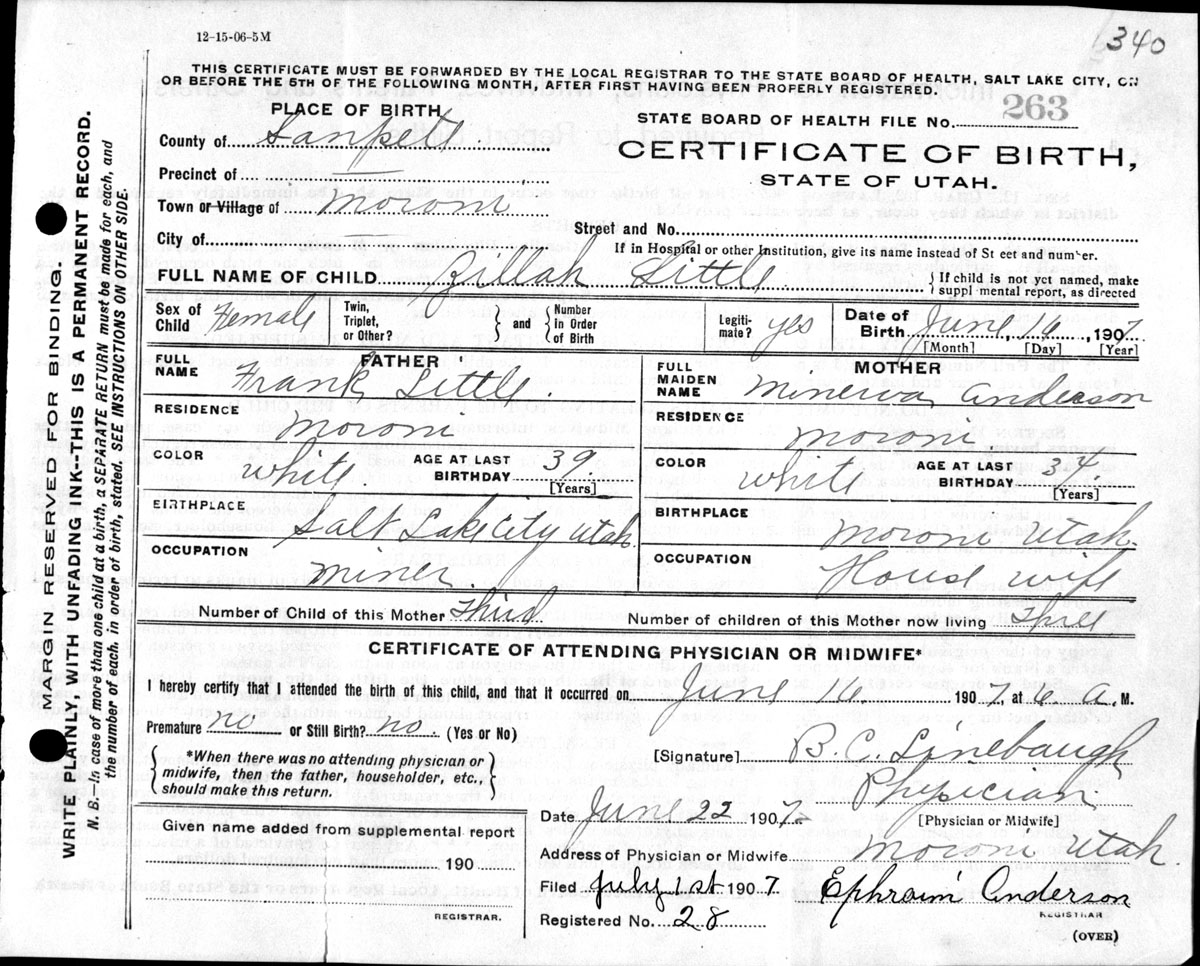 12-15-06-5M
340
THIS CERTIFICATE MUST BE FORWARDED BY THE LOCAL REGISTRAR TO THE STATE BOARD OF HEALTH, SALT LAKE CITY, ON
OR BEFORE THE 5TH OF THE FOLLOWING MONTH, AFTER FIRST HAVING BEEN PROPERLY REGISTERED.
PLACE OF BIRTH
STATE BOARD OF HEALTH FILE No. 263
County of Sanpete
CERTIFICATE OF BIRTH,
STATE OF UTAH.
Precinct of —
Town or Village of Moroni
Street and No.
City of —
If in Hospital or other Institution, give its name instead of St eet and number.
FULL NAME OF CHILD Zillah Little } If child is not yet named, make
suppl mental report, as directed
Sex of Child Female
Twin, Triplet, or Other? } and { Number in Order of Birth
Legiti-mate? yes
Date of Birth June, 16, 1907
[Month] [Day] [Year]
FATHER
FULL NAME Frank Little.
RESIDENCE Moroni
COLOR White AGE AT LAST BIRTHDAY 39
[Years]
BIRTHPLACE Salt Lake City Utah.
OCCUPATION miner.
MOTHER
FULL MAIDEN NAME Minerva Anderson
RESIDENCE Moroni
COLOR White AGE AT LAST BIRTHDAY 34
[Years]
BIRTHPLACE Moroni Utah.
OCCUPATION House wife
Number of Child of this Mother Third Number of children of this Mother now living Three
CERTIFICATE OF ATTENDING PHYSICIAN OR MIDWIFE*
I hereby certify that I attended the birth of this child, and that it occurred on June 16 1907, at 6 a. M.
Premature no or Still Birth? no. (Yes or No)
{ *When there was no attending physician or
midwife, then the father, householder, etc.,
should make this return. }
[Signature] B. C. Linebaugh
Physician
[Physician or Midwife]
Date June 22 1907
Address of Physician or Midwife Moroni Utah.
Given name added from supplemental report
190
REGISTRAR.
Filed July 1st 1907. Ephraim Anderson
REGISTRAR
Registered No. 28
(OVER)
MARGIN RESERVED FOR BINDING.
WRITE PLAINLY, WITH UNFADING INK--THIS IS A PERMANENT RECORD.
N. B.—In case of more than one child at a birth, a SEPARATE RETURN must be made for each, and
the number of each, in order of birth, stated. SEE INSTRUCTIONS ON OTHER SIDE.